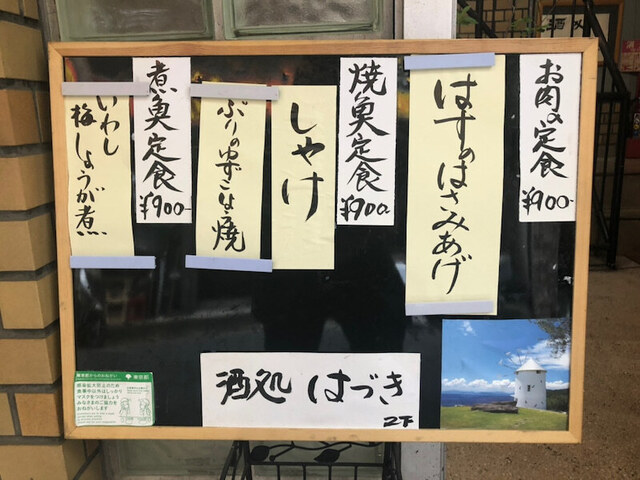 お肉の定食
¥900-
はすのはさみあげ
焼魚定食
¥900
しゃけ
ぶりのゆずこしょう焼
煮魚定食
¥900-
いわし
梅しょうが煮
酒処 はづき
2F
東京都